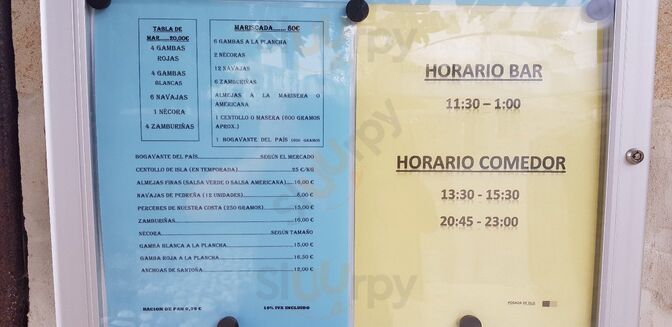 TABLA DE
MAR......30,00€
4 GAMBAS
ROJAS
4 GAMBAS
BLANCAS
6 NAVAJAS
1 NÉCORA
4 ZAMBURIÑAS
MARISCADA....... 80€
6 GAMBAS A LA PLANCHA
2 NÉCORAS
12 NAVAJAS
6 ZAMBURIÑAS
ALMEJAS A LA MARINERA O
AMERICANA
1 CENTOLLO O MASERA (600 GRAMOS
APROX.)
1 BOGAVANTE DEL PAÍS GRAMOS
BOGAVANTE DEL PAÍS...............SEGÚN EL MERCADO
CENTOLLO DE ISLA (EN TEMPORADA)...............25 €/KG
ALMEJAS FINAS (SALSA VERDE O SALSA AMERICANA)....16,00 €
NAVAJAS DE PEDREÑA (12 UNIDADES)...............8,00 €
PERCEBES DE NUESTRA COSTA (250 GRAMOS)...............15,00 €
ZAMBURIÑAS...............16,00 €
NÉCORA...............SEGÚN TAMAÑO
GAMBA BLANCA A LA PLANCHA...............15,00 €
GAMBA ROJA A LA PLANCHA...............16,50 €
ANCHOAS DE SANTOÑA...............12,00 €
RACION DE PAN 0,75 €
10% IVA INCLUIDO
HORARIO BAR
11:30 – 1:00
HORARIO COMEDOR
13:30 - 15:30
20:45 - 23:00
Sluurpy
Sluurpy
Sluurpy
Sluurpy